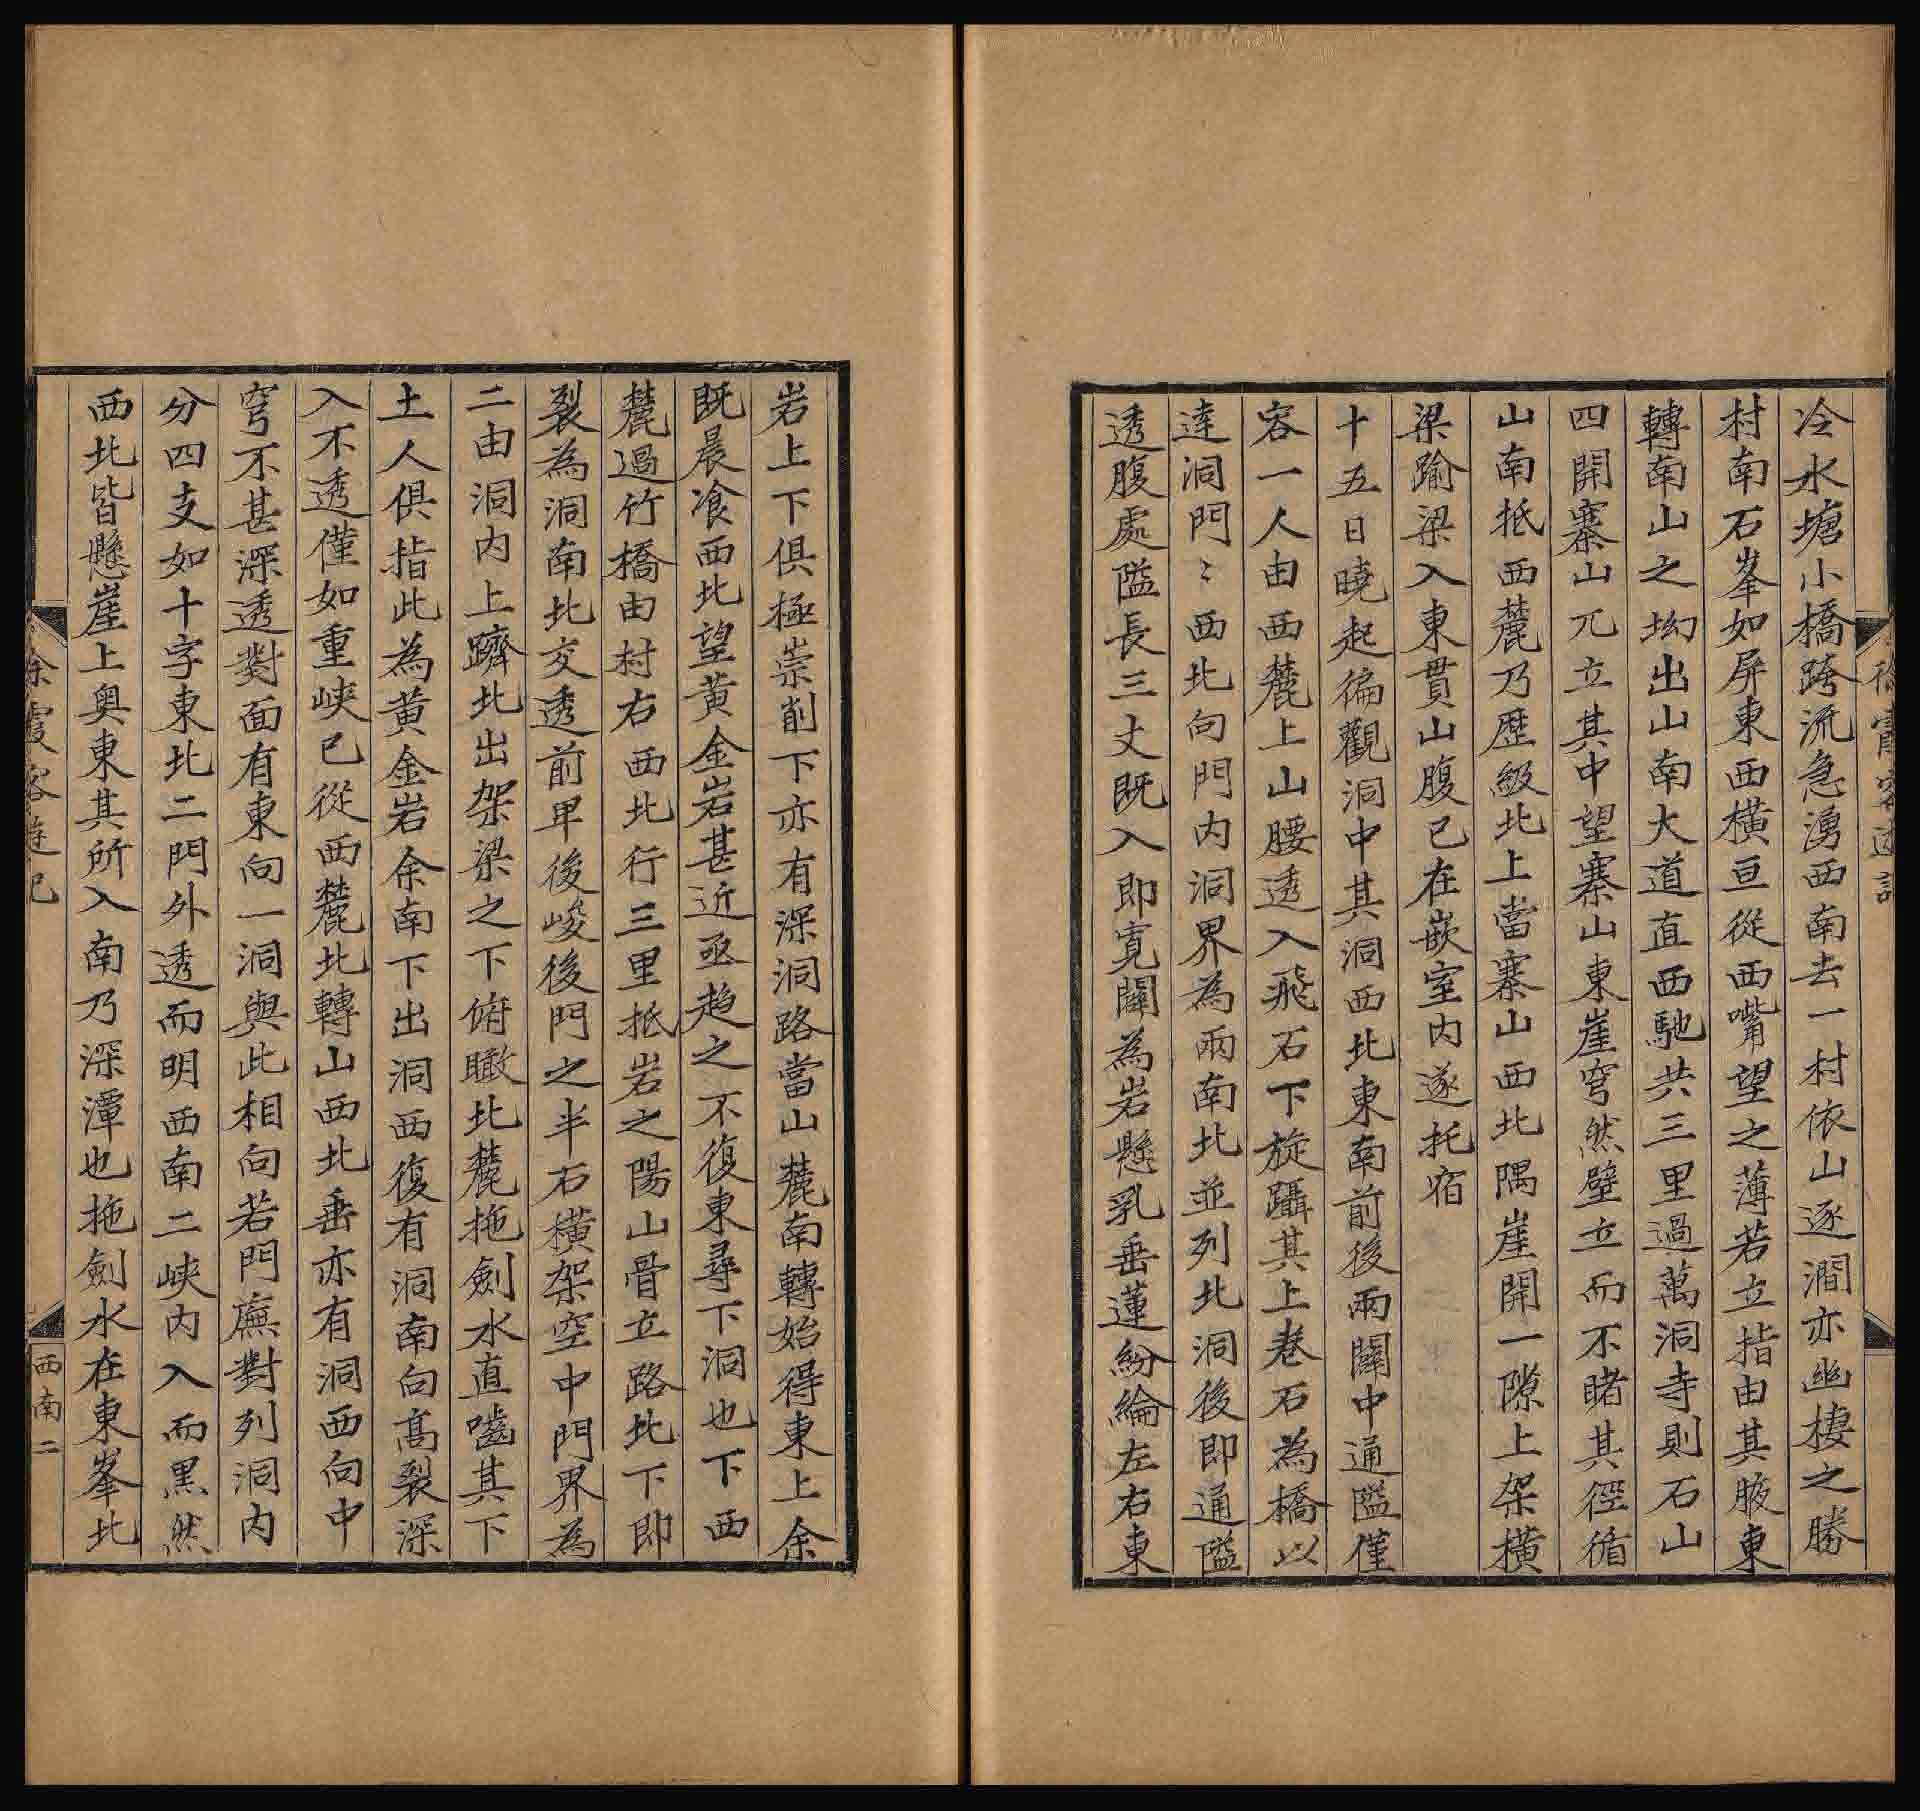 冷水塘小橋跨流急湧西南去一村依山逐澗亦幽棲之勝
村南石峯如屏東西橫亘從西嘴望之薄若立指由其腋東
轉南山之坳出山南大道直西馳共三里過萬洞寺則石山
四開寨山兀立其中望寨山東崖穹然壁立而不睹其徑循
山南抵西麓乃歷級北上當寨山西北隅崖開一隙上架橫
梁踰梁入東貫山腹已在嵌室内遂托宿
十五日曉起徧觀洞中其洞西北東南前後兩闢中通隘僅
容一人由西麓上山腰透入飛石下旋躡其上卷石為橋以
達洞門〻西北向門内洞界為兩南北並列北洞後即通隘
透腹處隘長三丈既入即寛闢為岩懸乳垂蓮紛綸左右東
岩上下俱極崇削下亦有深洞路當山麓南轉始得東上余
既晨飡西北望黄金岩甚近亟趋之不復東尋下洞也下西
麓過竹橋由村右西北行三里抵岩之陽山骨立路北下即
裂為洞南北交透前卑後峻後門之半石橫架空中門界為
二由洞内上躋北出架梁之下俯瞰北麓拖劍水直嚙其下
土人俱指此為黄金岩余南下出洞西復有洞南向高裂深
入不透僅如重峽已從西麓北轉山西北垂亦有洞西向中
穹不甚深透對面有東向一洞與此相向若門廡對列洞内
分四支如十字東北二門外透而明西南二峽内入而黑然
西北皆懸崖上奥東其所入南乃深潭也拖劍水在東峯北
徐霞客遊記
西南二